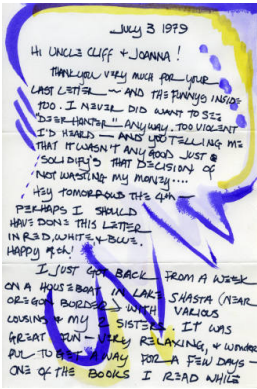 JULY 3 1979
HI UNCLE CLIFF & JOANNA!
THANKYOU VERY MUCH FOR YOUR
LAST LETTER ~ AND THE FUNNYS INSIDE
TOO. I NEVER DID WANT TO SEE
"DEERHUNTER" ANYWAY. TOO VIOLENT
I'D HEARD — AND YOU TELLING ME
THAT IT WASN'T ANY GOOD JUST
SOLIDIFYS THAT DECISION OF
NOT WASTING MY MONEY....
HEY TOMORROW THE 4th —
PERHAPS I SHOULD
HAVE DONE THIS LETTER
IN RED, WHITE & BLUE.
HAPPY 4th!
I JUST GOT BACK FROM A WEEK
ON A HOUSEBOAT IN LAKE SHASTA (NEAR
OREGON BORDER) WITH VARIOUS
COUSINS & MY 2 SISTERS. IT WAS
GREAT FUN — VERY RELAXING, & WONDER
FUL TO GET AWAY FOR A FEW DAYS —
ONE OF THE BOOKS I READ WHILE